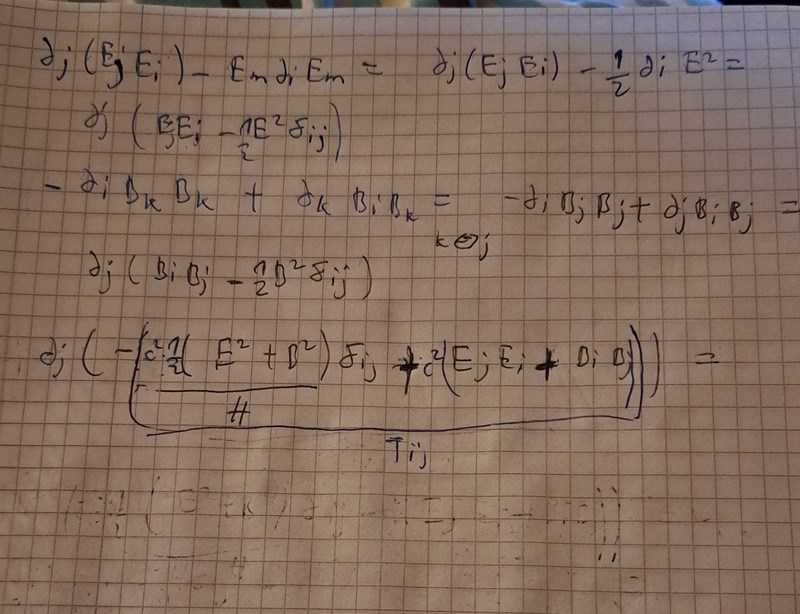 ∂j (Ej Ei) - Em ∂i Em = ∂j (Ej Ei) - 1/2 ∂i E² =
∂j (EjEi - 1/2 E² δij)
- ∂i Bk Bk + ∂k Bi Bk = k↔j - ∂i Bj Bj + ∂j Bi Bj =
∂j (Bi Bj - 1/2 B² δij)
∂j ( - ( c² 1/2 ( E² + B² ) δij + c² ( Ej Ei + Bi Bj ) ) ) =
H
Tij